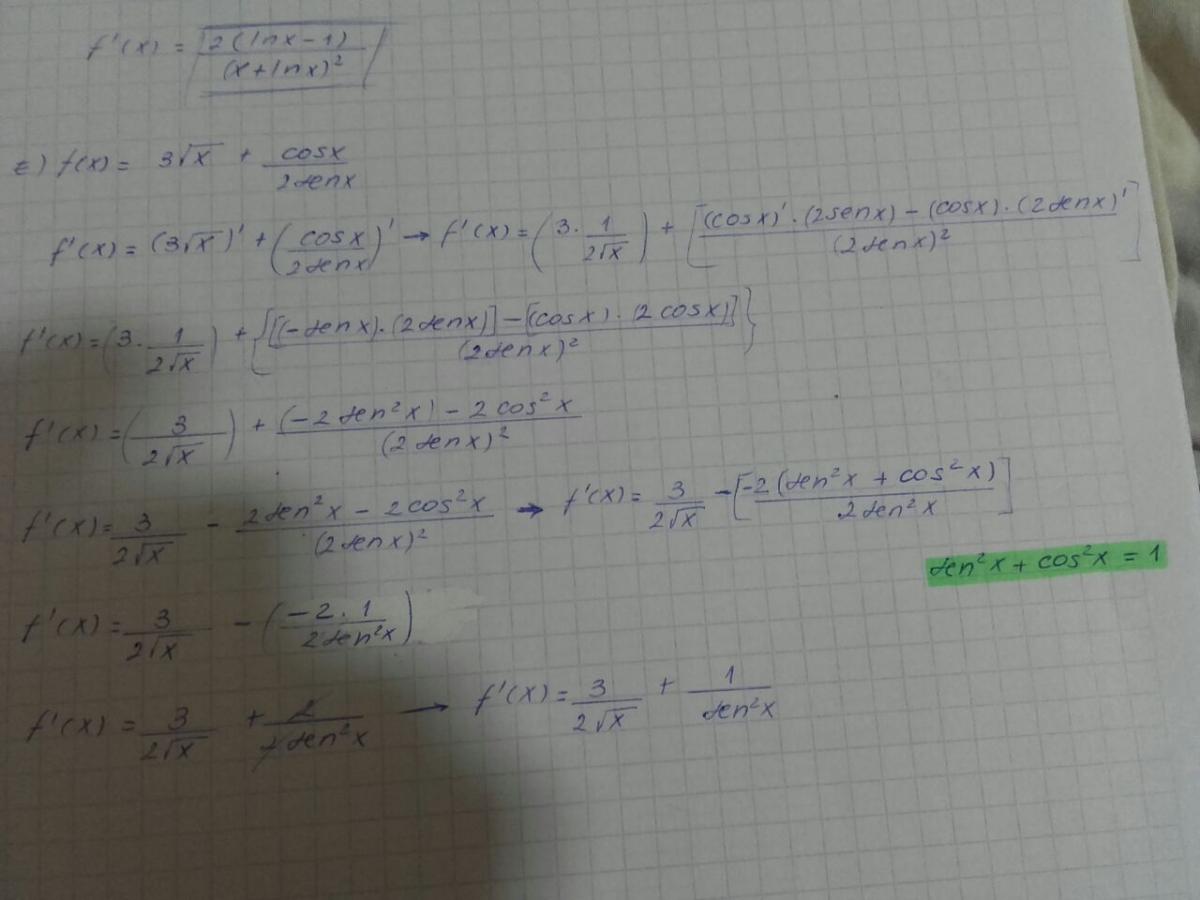 f'(x) = 2(lnx-1) / (x+lnx)²
E) f(x) = 3√x + cosx / 2senx
f'(x) = (3√x)' + (cosx / 2senx)' → f'(x) = (3· 1 / 2√x) + [(cosx)'·(2senx) - (cosx)·(2senx)' / (2senx)²]
f'(x) = (3· 1 / 2√x) + {[(-senx)·(2senx)] - [(cosx)·(2cosx)] / (2senx)²}
f'(x) = (3 / 2√x) + (-2sen²x) - 2cos²x / (2senx)²
f'(x) = 3 / 2√x - 2sen²x - 2cos²x / (2senx)² → f'(x) = 3 / 2√x - [-2(sen²x + cos²x) / 2sen²x]
sen²x + cos²x = 1
f'(x) = 3 / 2√x - (-2·1 / 2sen²x)
f'(x) = 3 / 2√x + 2 / 2sen²x → f'(x) = 3 / 2√x + 1 / sen²x